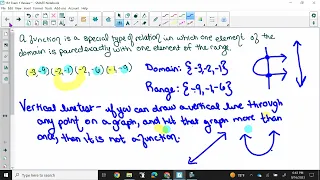 A function is a special type of relation in which one element of the
domain is paired exactly with one element of the range.
(-3,-9) (-2,-1) (-2,-6) (-1,-9)
Domain: {-3,-2,-1}
Range: {-9,-1-6}
Vertical line test - if you can draw a vertical line through
any point on a graph, and hit that graph more than
one, then it is not a function.